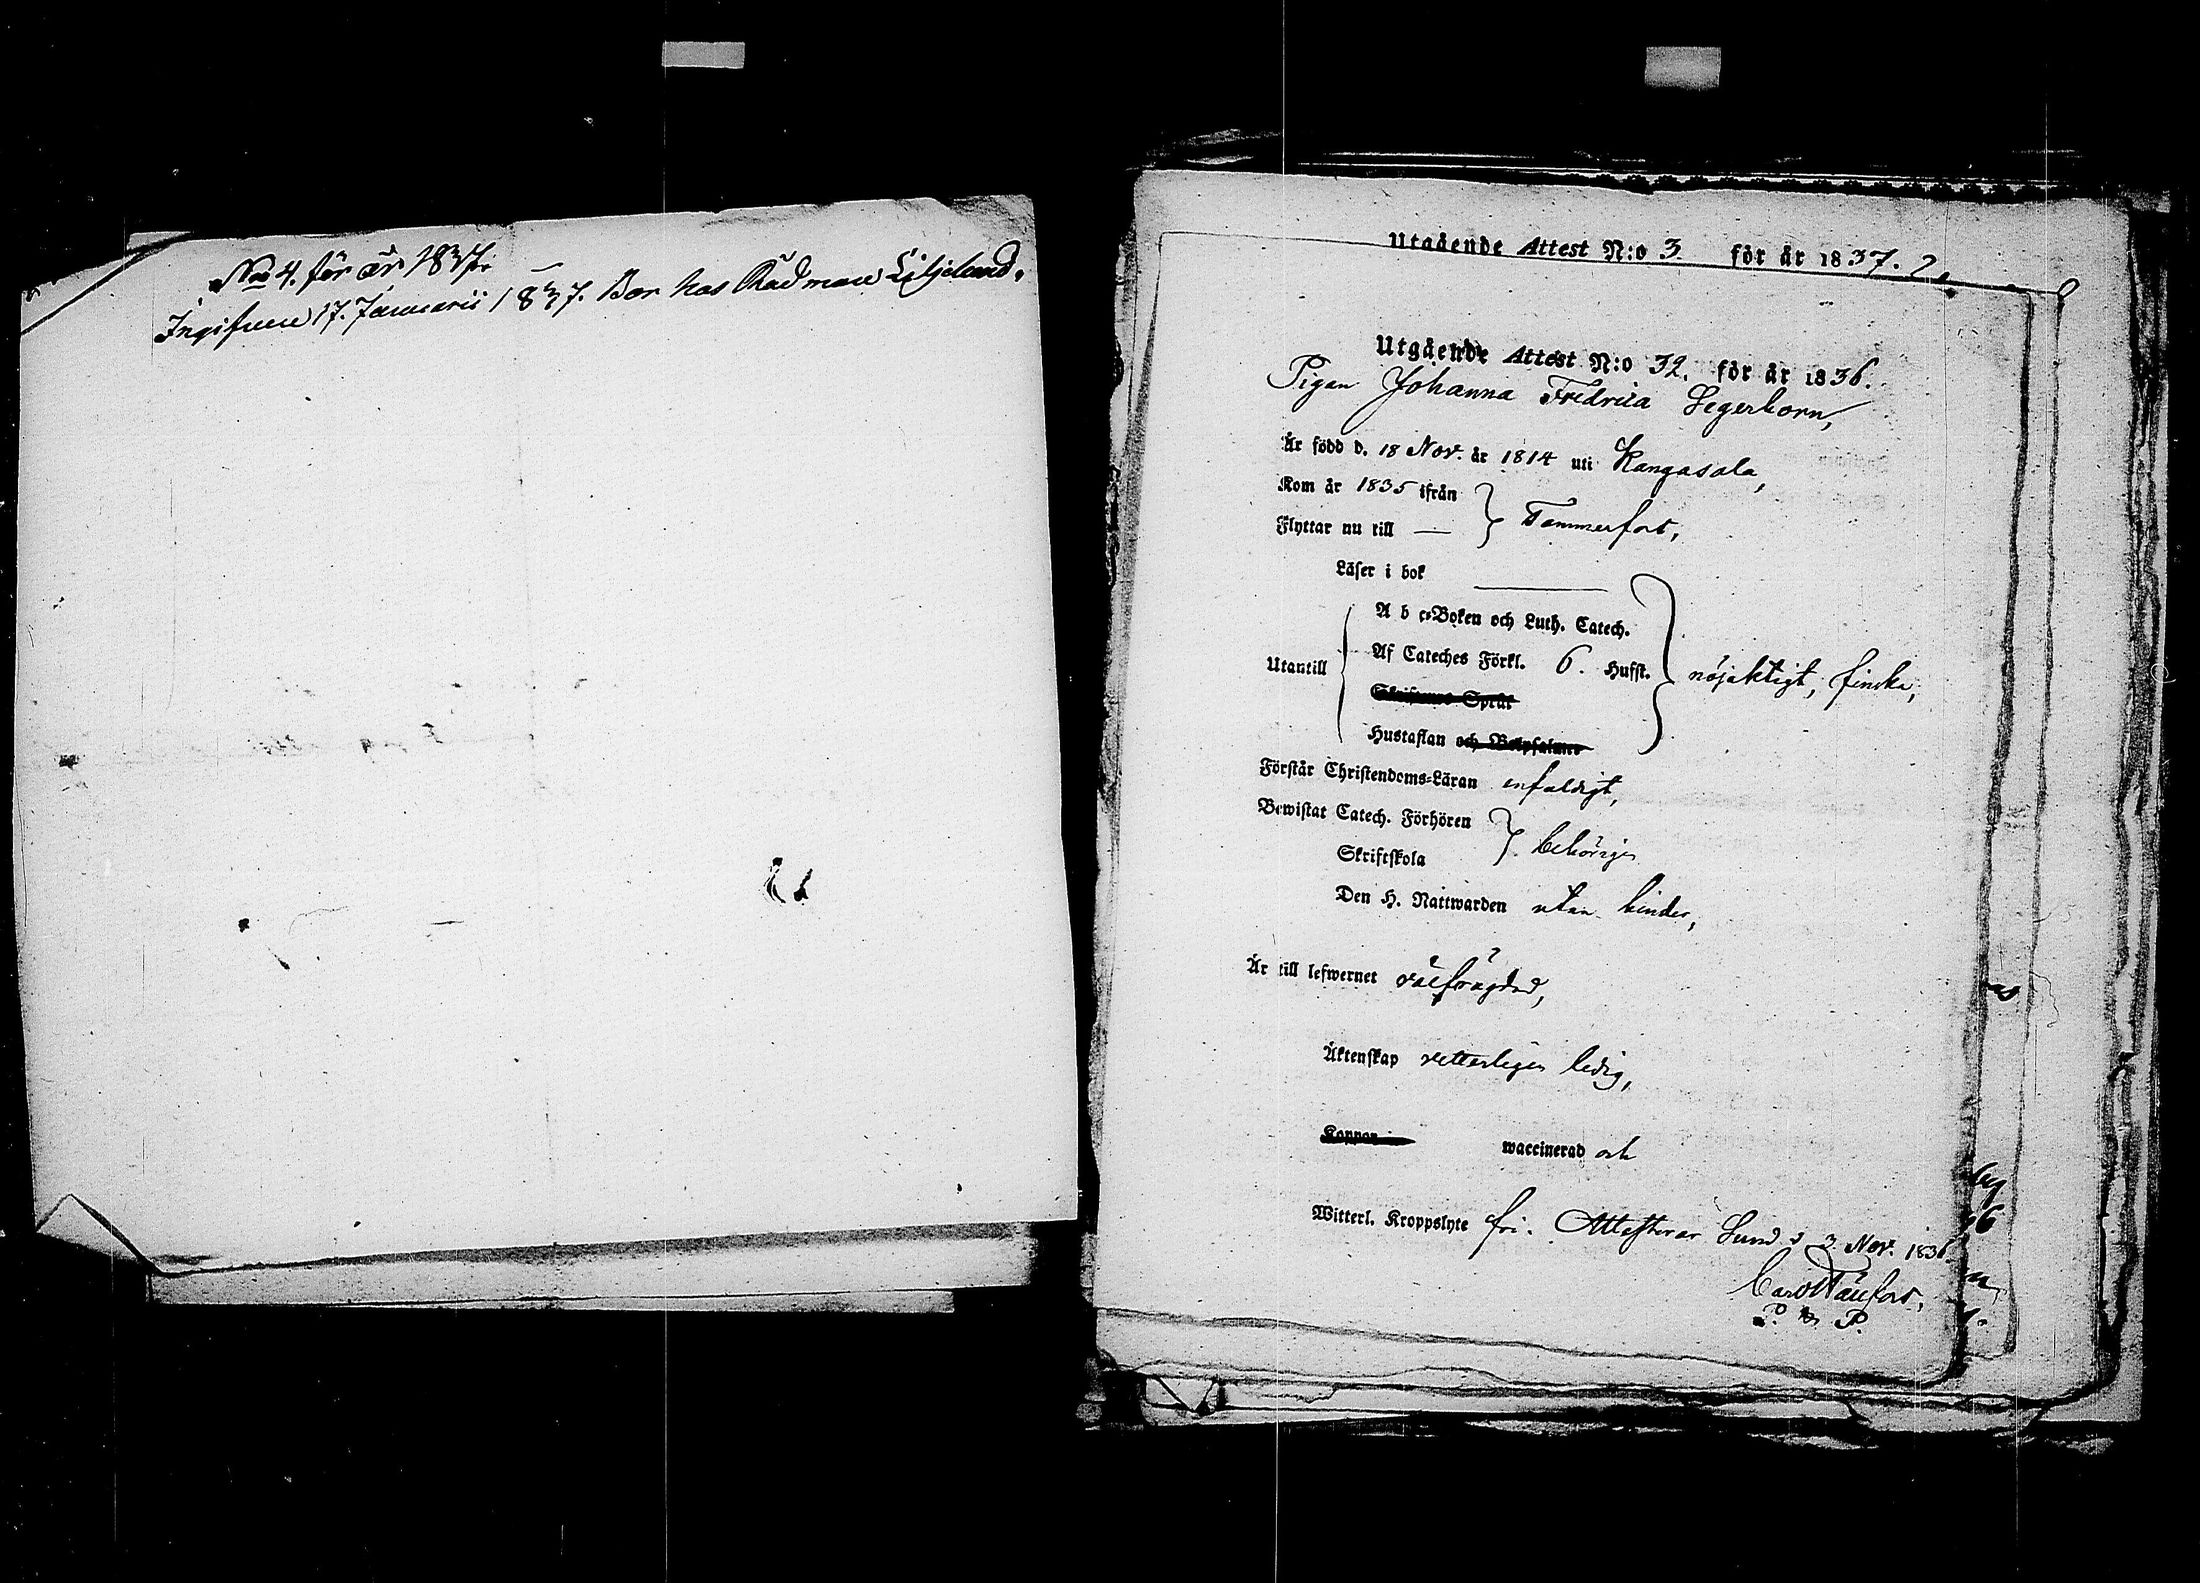 No 4. för år 1837.
Ingifven 17. Januarii 1837. Bor hos Rådman Liljelund.
Utgående Attest N:o 3 för år 1837.
Utgående Attest N:o 32. för år 1836.
Pigan Johanna Fredrica Segerborn,
Är född d. 18 Nov. år 1814 uti Kangasala,
Kom år 1835 ifrån
Flyttar nu till — } Tammerfors,
Läser i bok
A b c-Boken och Luth. Catech.
Utantill Af Cateches Förkl. 6. Hufst. nöjaktigt, finska,
Skriftenes Språk
Hustaflan och Botpsalmer
Förstår Christendoms-Läran enfaldigt,
Bewistat Catech. Förhören
Skriftskola } behörigen
Den H. Nattwarden utan hinder,
Är till lefwernet välfrägdad,
Äktenskap vetterligen ledig,
Koppor waccinerad och
Witterl. Kroppslyte fri. Attesterar Lund d 3 Nov. 1836.